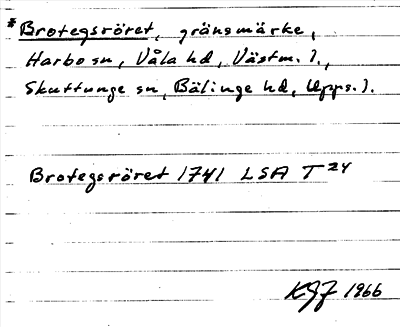 *Brotegsröret, gränsmärke,
Harbo sn, Våla hd, Västm. l.,
Skuttunge sn, Bälinge hd, Upps. l.
Brotegsröret 1741 LSA T 24
KGJ 1966